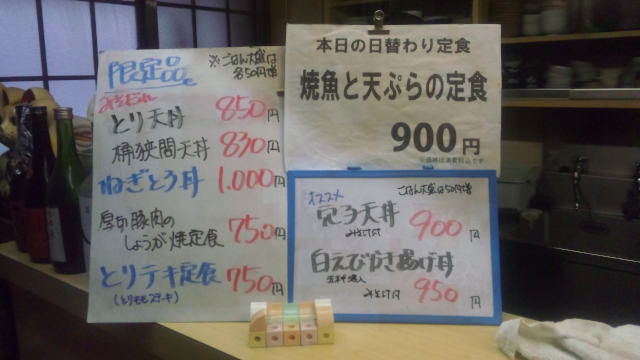 限定品。
※ごはん大盛は
50円増
みそだれ
とり天丼 850円
桶狭間天丼 830円
ねぎとろ丼 1,000円
厚切豚肉の
しょうが焼定食 750円
とりテキ定食 750円
(とりモモステーキ)
本日の日替わり定食
焼魚と天ぷらの定食
900円
※価格は消費税込です
オススメ
ごはん大盛は50円増
穴子天丼 900円
みそ汁付
白えびかき揚げ丼
みそ汁付 950円